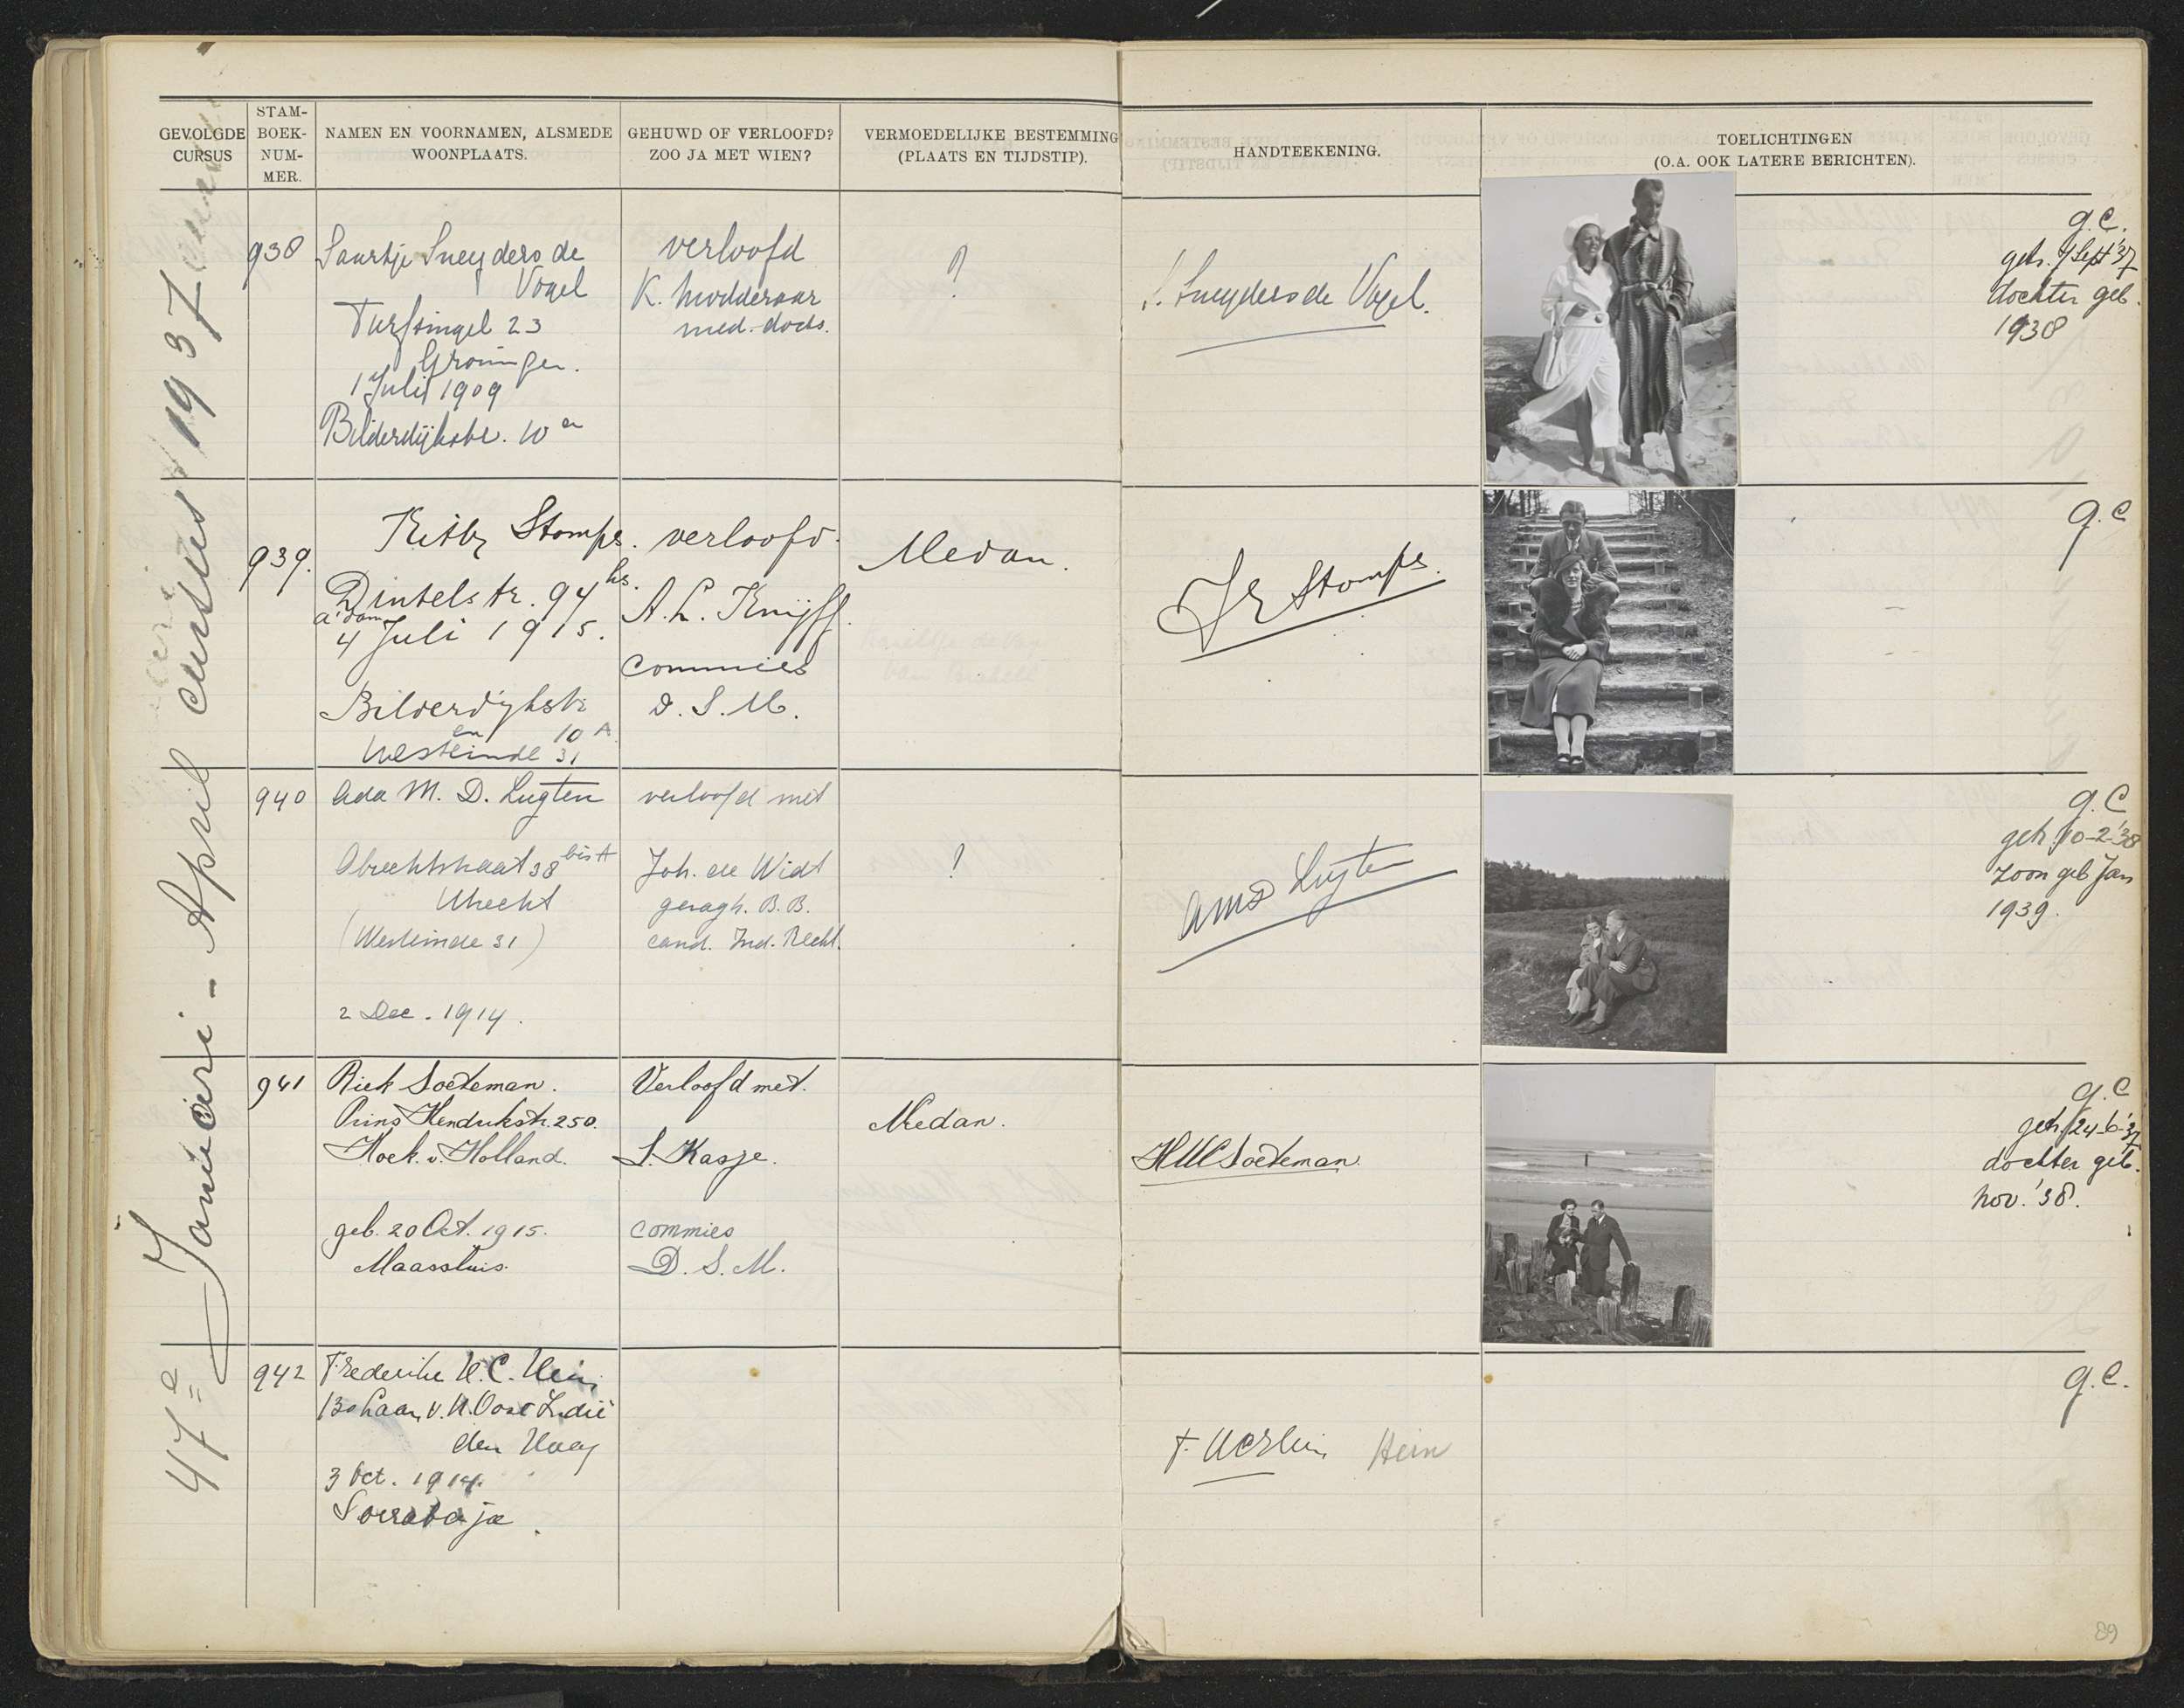 GEVOLGDE CURSUS
STAM-BOEK-NUM-MER.
NAMEN EN VOORNAMEN, ALSMEDE WOONPLAATS.
GEHUWD OF VERLOOFD? ZOO JA MET WIEN?
VERMOEDELIJKE BESTEMMING (PLAATS EN TIJDSTIP).
HANDTEEKENING.
TOELICHTINGEN (O.A. OOK LATERE BERICHTEN).
47e Januari - April cursus 1937
938
Saartje Sneyders de
Vogel
Turfsingel 23
Groningen.
1 Juli 1909
Bilderdijkstr. 10 a
verloofd
K. Modderaar
med. docts.
?
S. Sneyders de Vogel.
g.C.
getr. 7 Sept '37
dochter geb.
1938
939.
Kitty Stomps.
Dintelstr. 94 hs.
a'dam
4 Juli 1915.
Bilderdijkstr
en 10 A
Westeinde 31
verloofd.
A. L. Knijff.
commies
D. S. M.
Medan.
J E Stomps.
g.C
940
Ada M. D. Lugten
Obrechtstraat 38 bis A
Utrecht
(Westeinde 31)
2 Dec. 1914.
verloofd met
Joh. de Widt
geragh. B.B.
cand. Ind. Recht.
?
AMD Lugten
g.C
getr. 10-2-'38
zoon geb Jan
1939.
941
Riek Soeteman.
Prins Hendrikstr. 250.
Hoek. v. Holland.
geb. 20 Oct. 1915.
Maassluis.
Verloofd met.
S. Kasje.
commies
D. S. M.
Medan.
HWC Soeteman.
g.C
getr. 24-6-'37
dochter geb.
nov. '38.
942
Frederike H. C. Hein
130 Laan v. N. Oost Indië
den Haag
3 Oct. 1914.
Soerabaja.
F. HC Hein Hein
g.C.
89